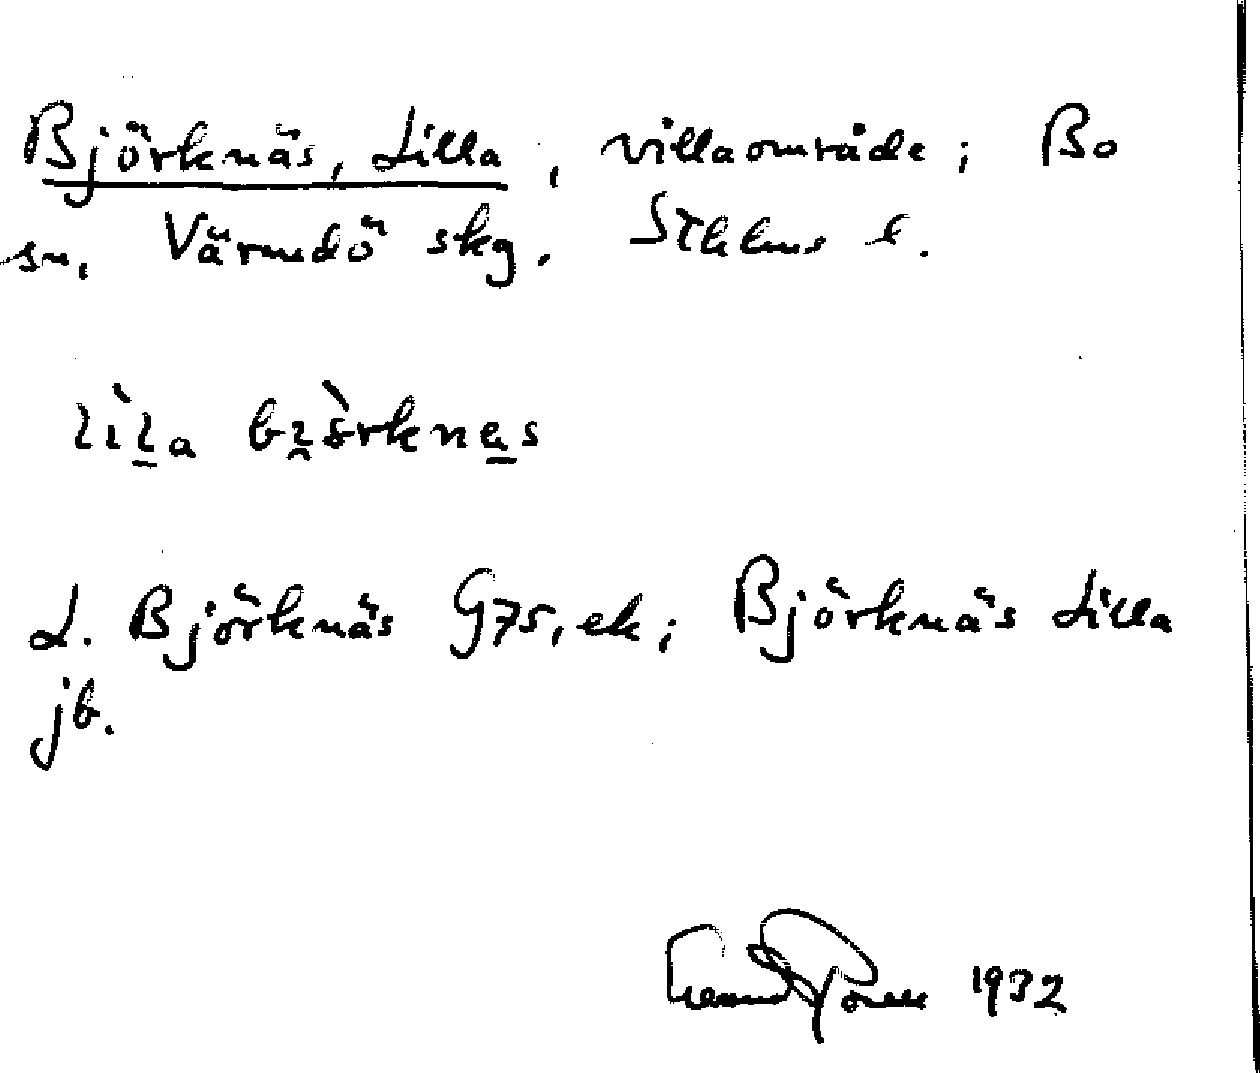 Björknäs, Lilla, villaområde; Bo
sn, Värmdö skg. Sthlms l.
lìl̲a bi̯ö̀rkne̲s
L. Björknäs G75, ek; Björknäs Lilla
jb.
1932